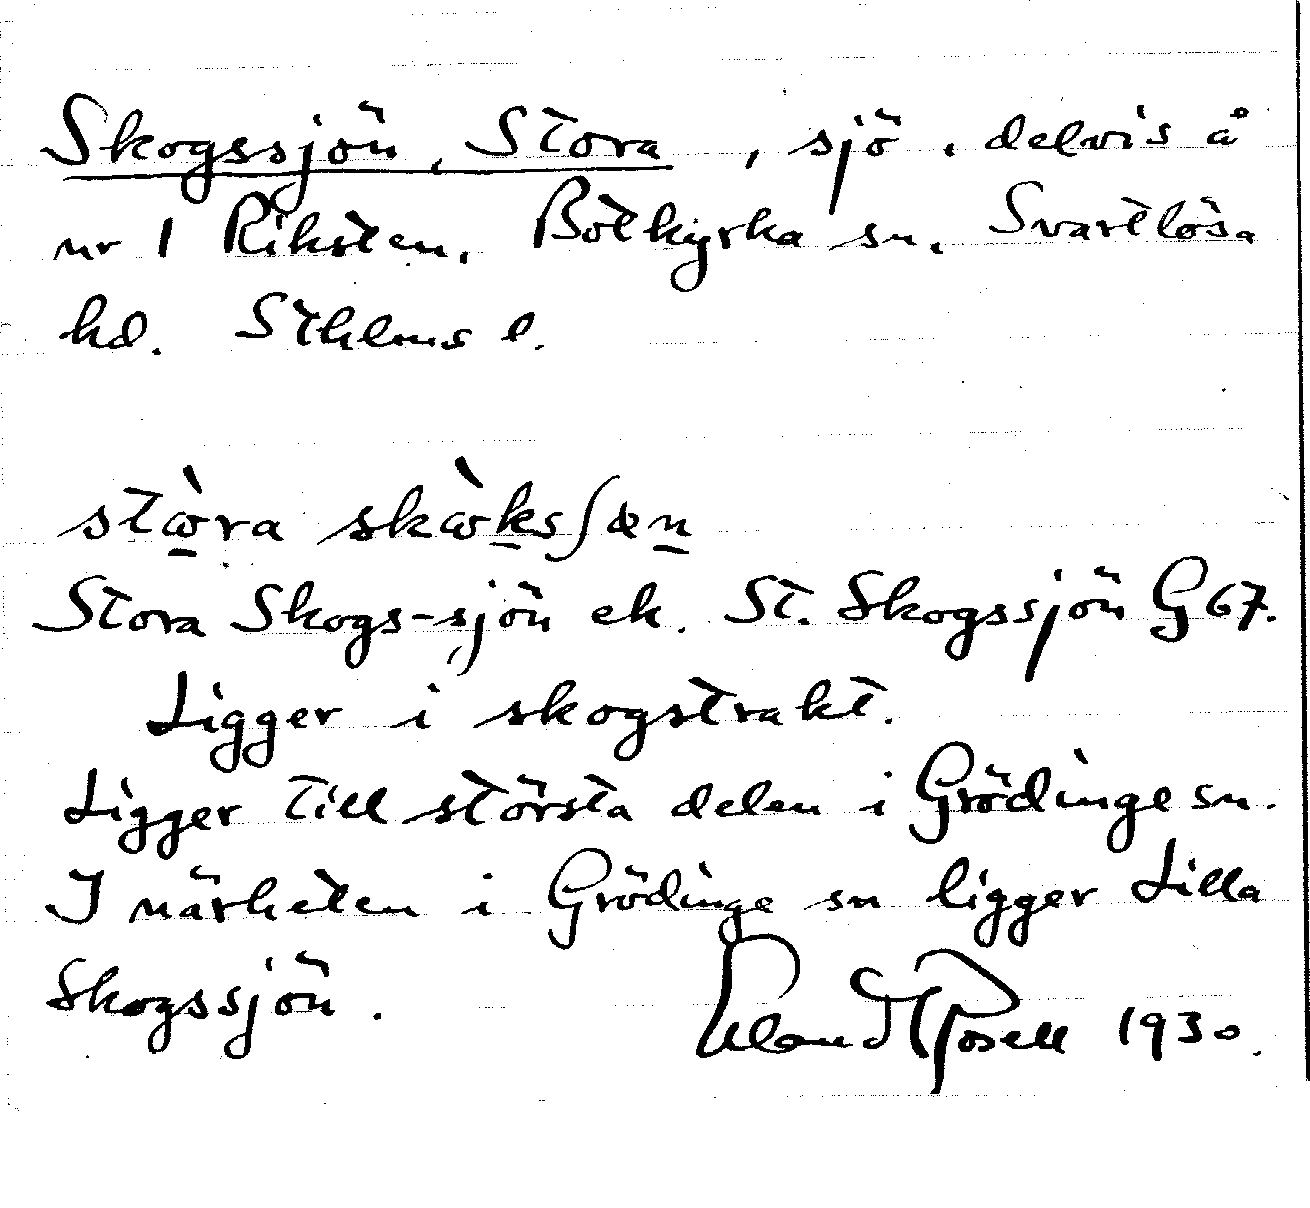 Skogssjön, Stora, sjö, delvis å
nr 1 Riksten, Botkyrka sn, Svartlösa
hd. Sthlms l.
stɷ̀ra skɷ̀ksʃœn
Stora Skogs-sjön ek. St. Skogssjön G 67.
Ligger i skogstrakt.
Ligger till största delen i Grödinge sn.
I närheten i Grödinge sn ligger Lilla
Skogssjön.
Erland Rosell 1930.